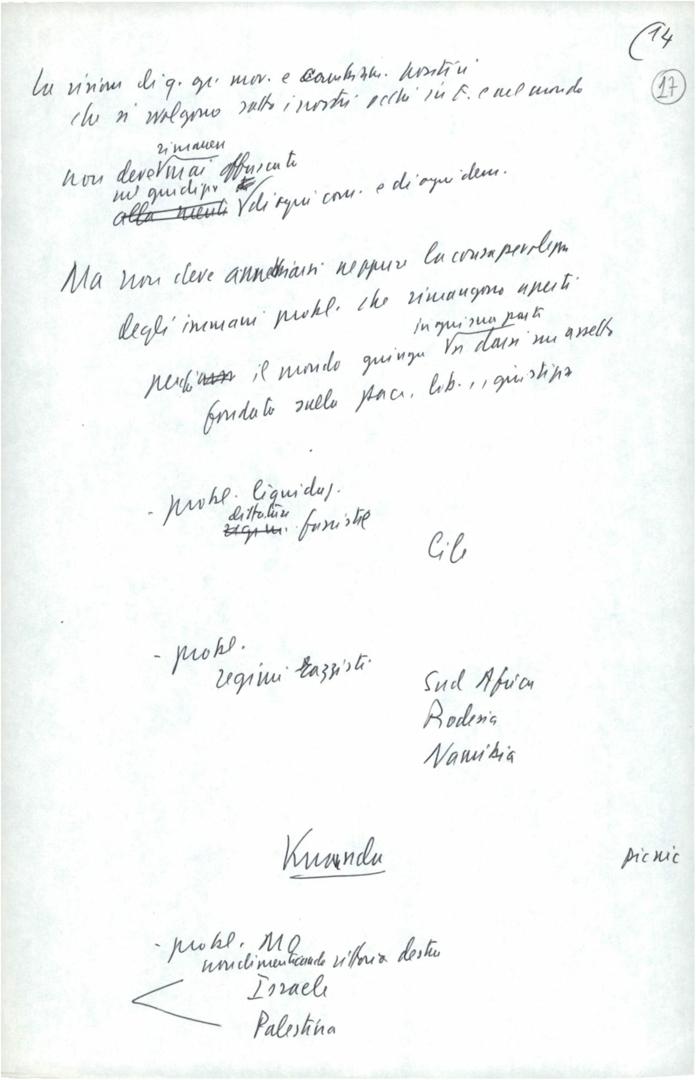 14
17
La visione di q. gr. mov. e cambiam. positivi
che si svolgono sotto i nostri occhi in E. e nel mondo
rimanere
non deve mai offuscata
nei giudizi
alla mente di ogni com. e di ogni dem.
Ma non deve annebbiarsi neppure la consapevolezza
degli immani probl. che rimangono aperti
in ogni sua parte
perché il mondo giunga a darsi un assetto
fondato sulla pace, lib., giustizia
- probl. liquidaz.
dittature
regimi fasciste
Cile
- probl.
regimi razzisti
Sud Africa
Rodesia
Namibia
Kuanda
picnic
- probl. MO
non dimenticando vittoria destra
Israele
Palestina